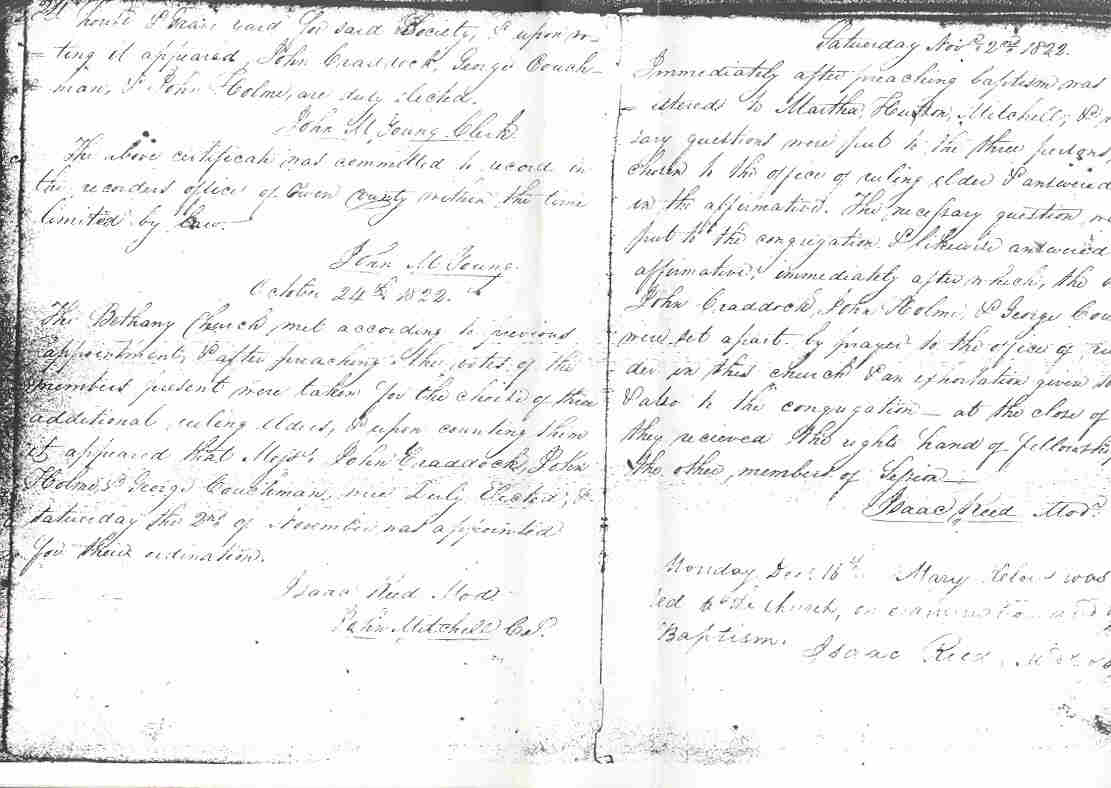 house & grave yard for said Society, & upon vo-
-ting it appeared, John Craddock, George Couch-
-man, & John Holme, are duly elected.
John M Young Clerk
The above certificate was committed to record in
the recorders office of Owen county within the time
limited by law.
John M Young
October 24th 1822.
The Bethany Church, met according to previous
appointment, & after preaching the votes of the
members present were taken for the choice of three
additional ruling elders, & upon counting them
it appeared that Messrs. John Craddock, John
Holme, & George Couchman, were Duly Elected; &
saturday the 2nd of November was appointed
for their ordination.
Isaac Reed Mod.
John Mitchell
Saturday Novr. 2nd 1822.
Immediately after preaching baptism was
-istered to Martha, Huston, Mitchell; &
-sary questions were put to the three persons
chosen to the office of ruling elder & answered
in the affirmative. The necessary question
put to the congregation & likewise answered
affirmative; immediately after which, the
John Craddock, John Holme, & George Cou
were set apart by prayer to the office of
-der in this church & an exhortation given
& also to the congregation — at the close of
they recieved the right hand of fellowship
the other, members of Session —
Isaac Reed Mod.
Monday Decr. 16th. Mary was
-ted to the church, on examination and
Baptism.
Isaac Reed, Mod